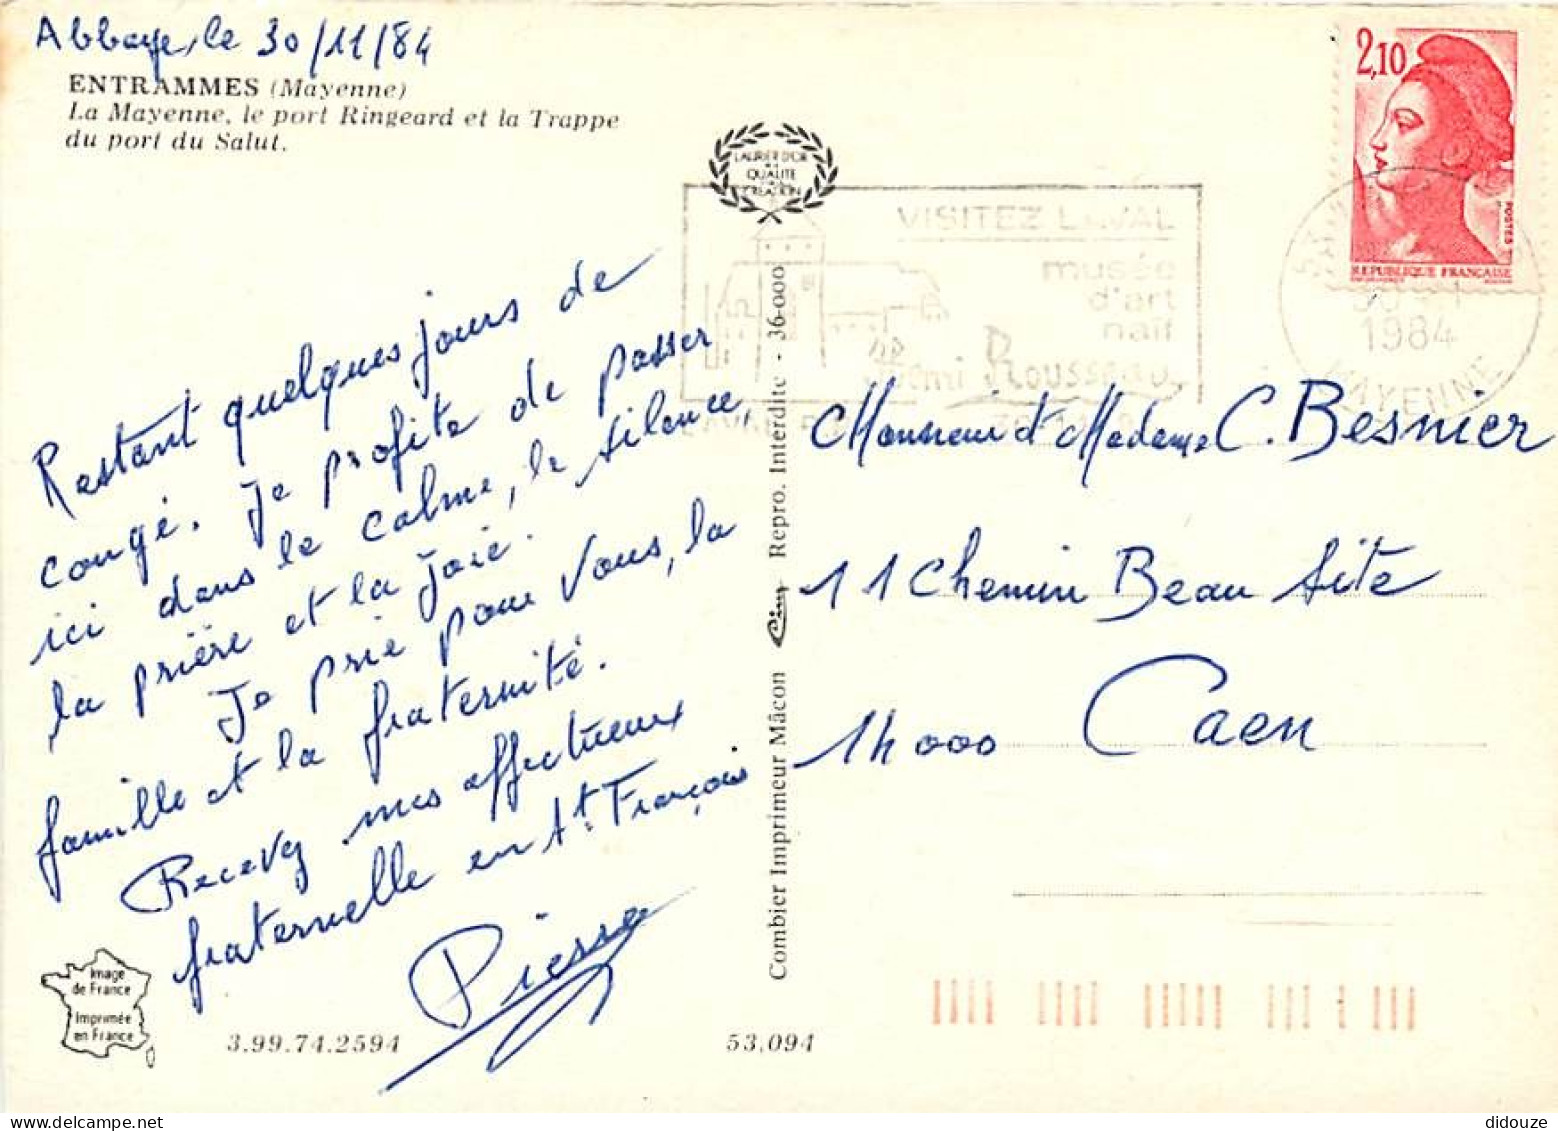 Abbaye, le 30/11/84
ENTRAMMES (Mayenne)
La Mayenne, le port Ringeard et la Trappe
du port du Salut.
Restant quelques jours de
congé. Je profite de passer
ici dans le calme, le silence,
la prière et la joie.
Je prie pour vous, la
famille et la fraternité.
Recevez mes affectueux
fraternelle en St François
Pierre
Image
de France
Imprimée
en France
3.99.74.2594
53,094
LAURIER D'OR
QUALITE
CREATION
Combier Imprimeur Mâcon Cim Repro. Interdite - 36-000
VISITEZ LAVAL
musée
d'art
naïf
Henri Rousseau
2,10
POSTES
REPUBLIQUE FRANÇAISE
1984
MAYENNE
Monsieur et Madame C. Besnier
11 Chemin Beau Site
14 000 Caen
didouze